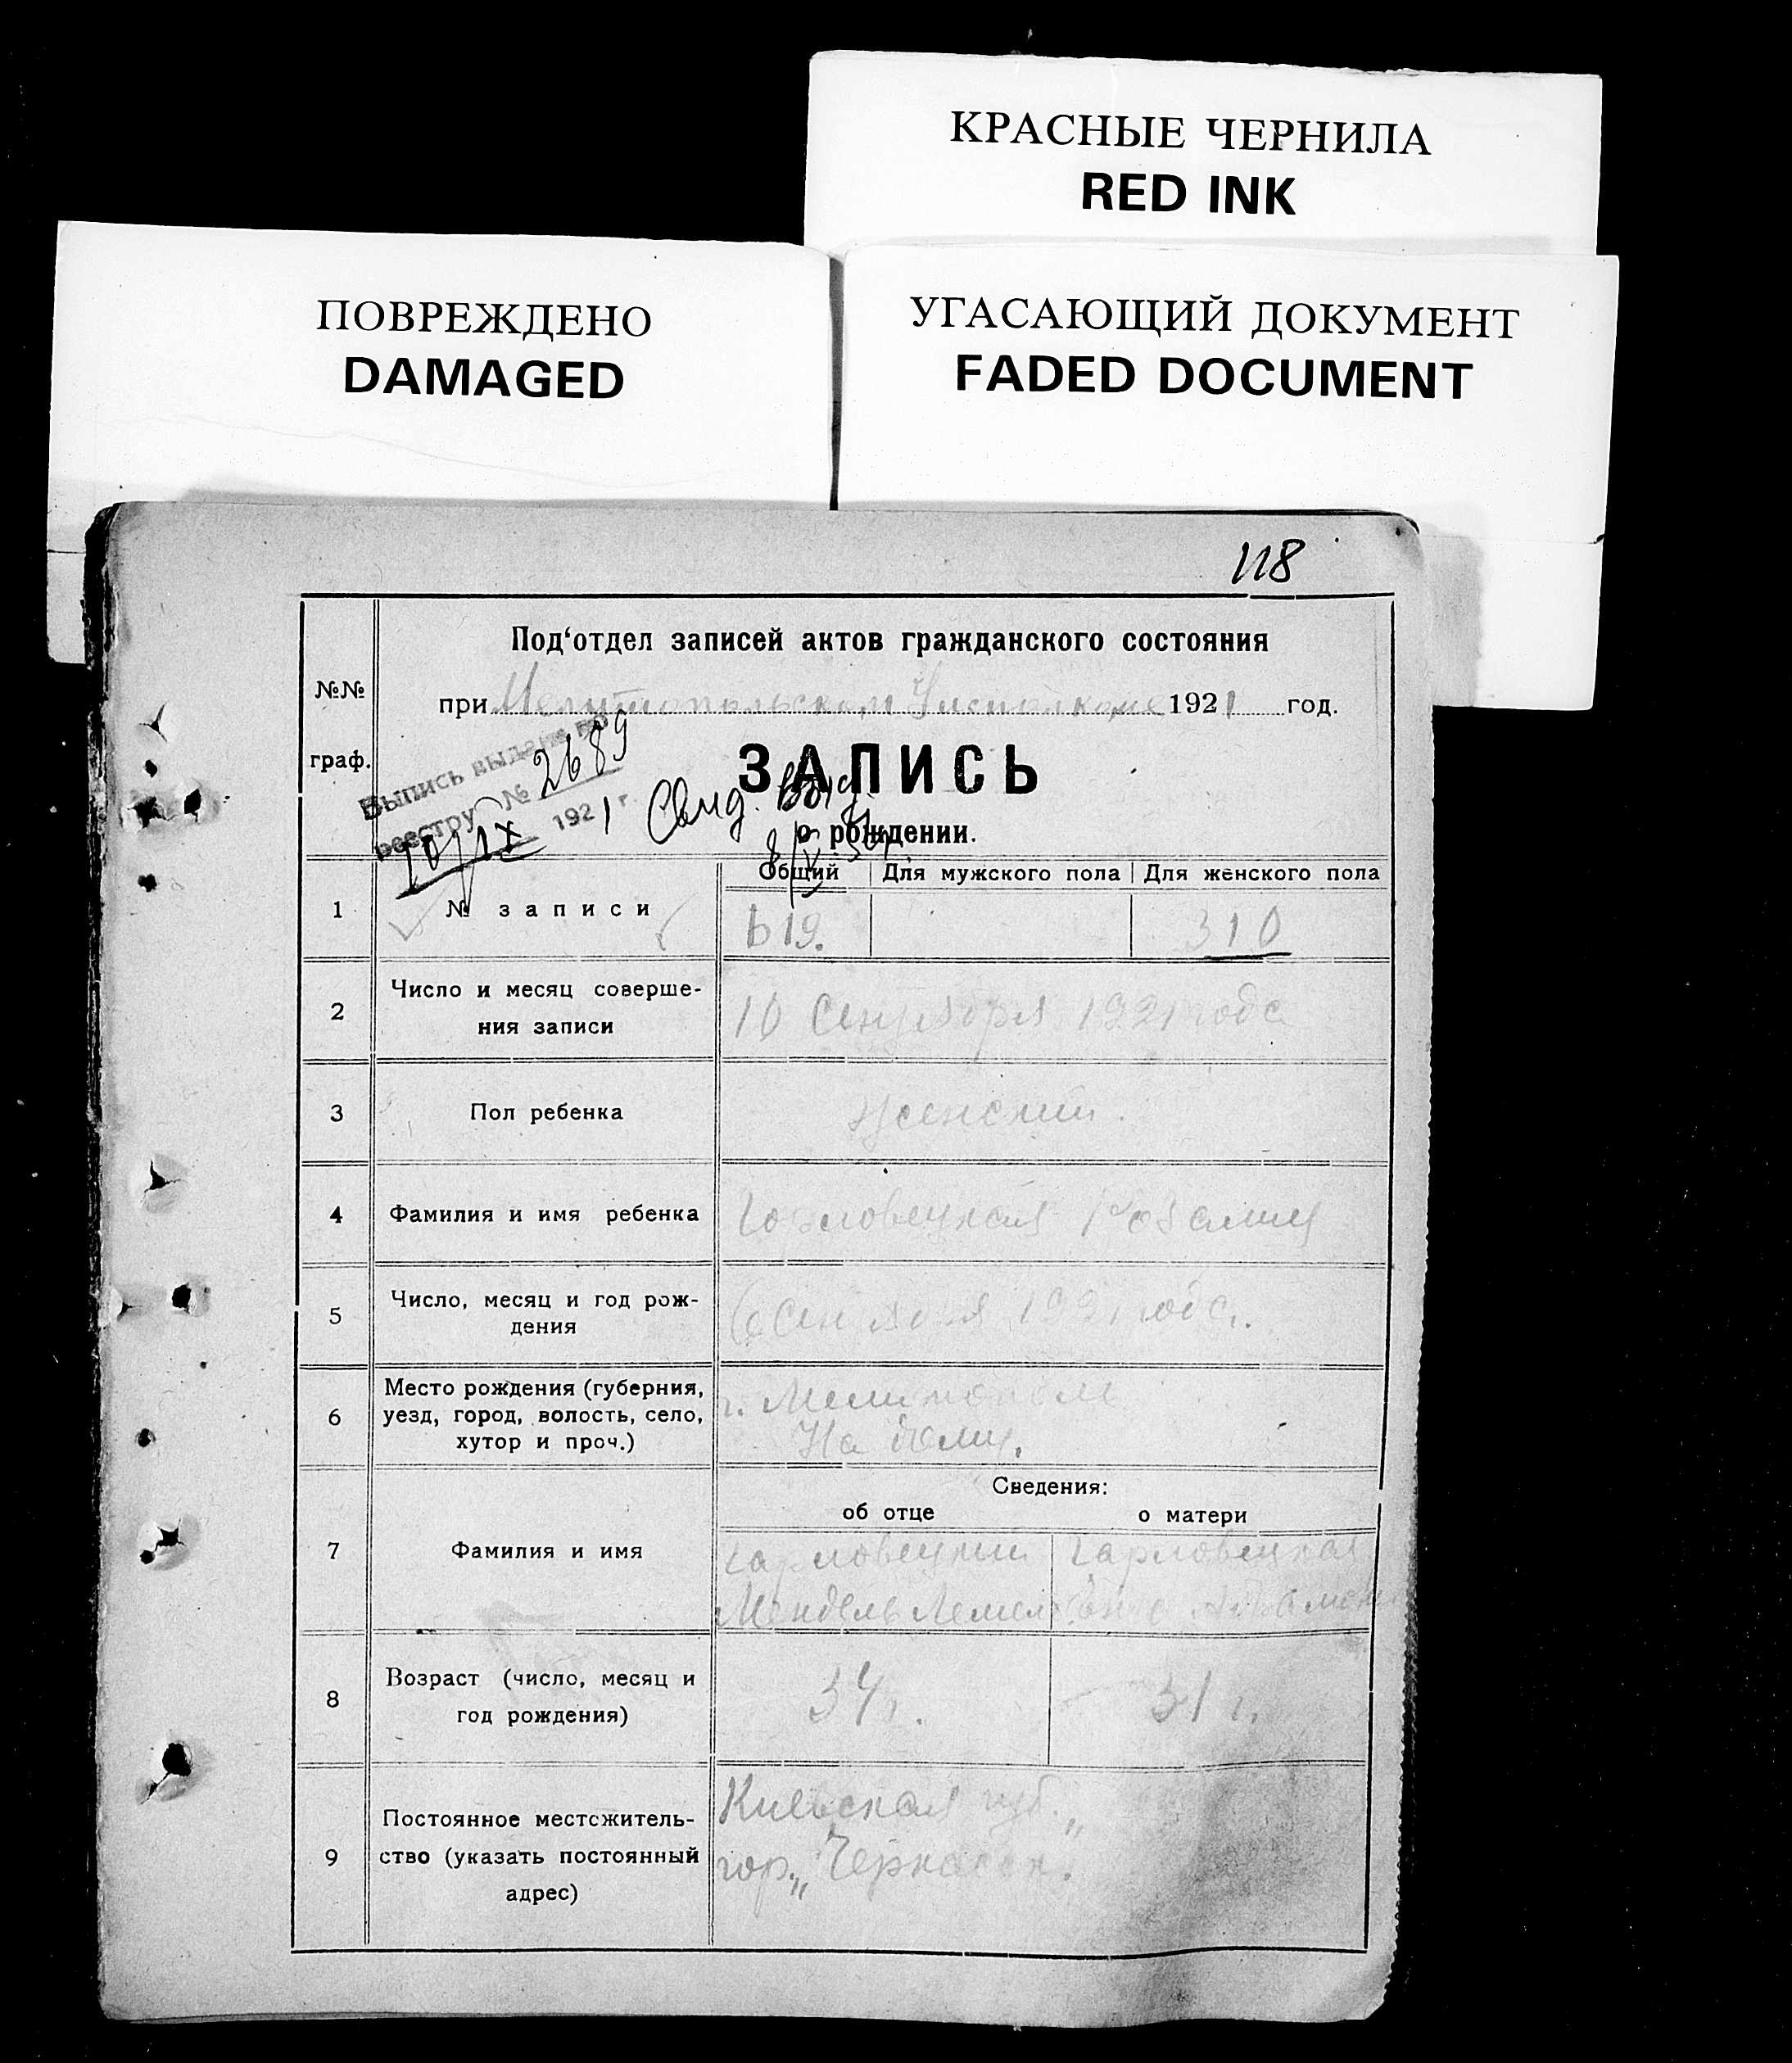 КРАСНЫЕ ЧЕРНИЛА
RED INK
ПОВРЕЖДЕНО
DAMAGED
УГАСАЮЩИЙ ДОКУМЕНТ
FADED DOCUMENT
118
Под‘отдел записей актов гражданского состояния
№№ граф.
при Мелитопольском Уисполкоме 1921 год.
Выпись выдана по
реестру № 2689
10/IX 1921 г.
Свид.
ЗАПИСЬ
о рождении.
Общий Для мужского пола Для женского пола
1 № записи 619. 310
2 Число и месяц соверше-
ния записи 10 Сентября 1921 года
3 Пол ребенка женский.
4 Фамилия и имя ребенка Розалия
5 Число, месяц и год рож-
дения 6 Сентября 1921 года.
6 Место рождения (губерния,
уезд, город, волость, село,
хутор и проч.) г. Мелитополе
На дому.
Сведения:
об отце о матери
7 Фамилия и имя
Мендель
8 Возраст (число, месяц и
год рождения) 34 г. 31 г.
9 Постоянное местожитель-
ство (указать постоянный
адрес) Киевская губ.
гор. „Черкассы.